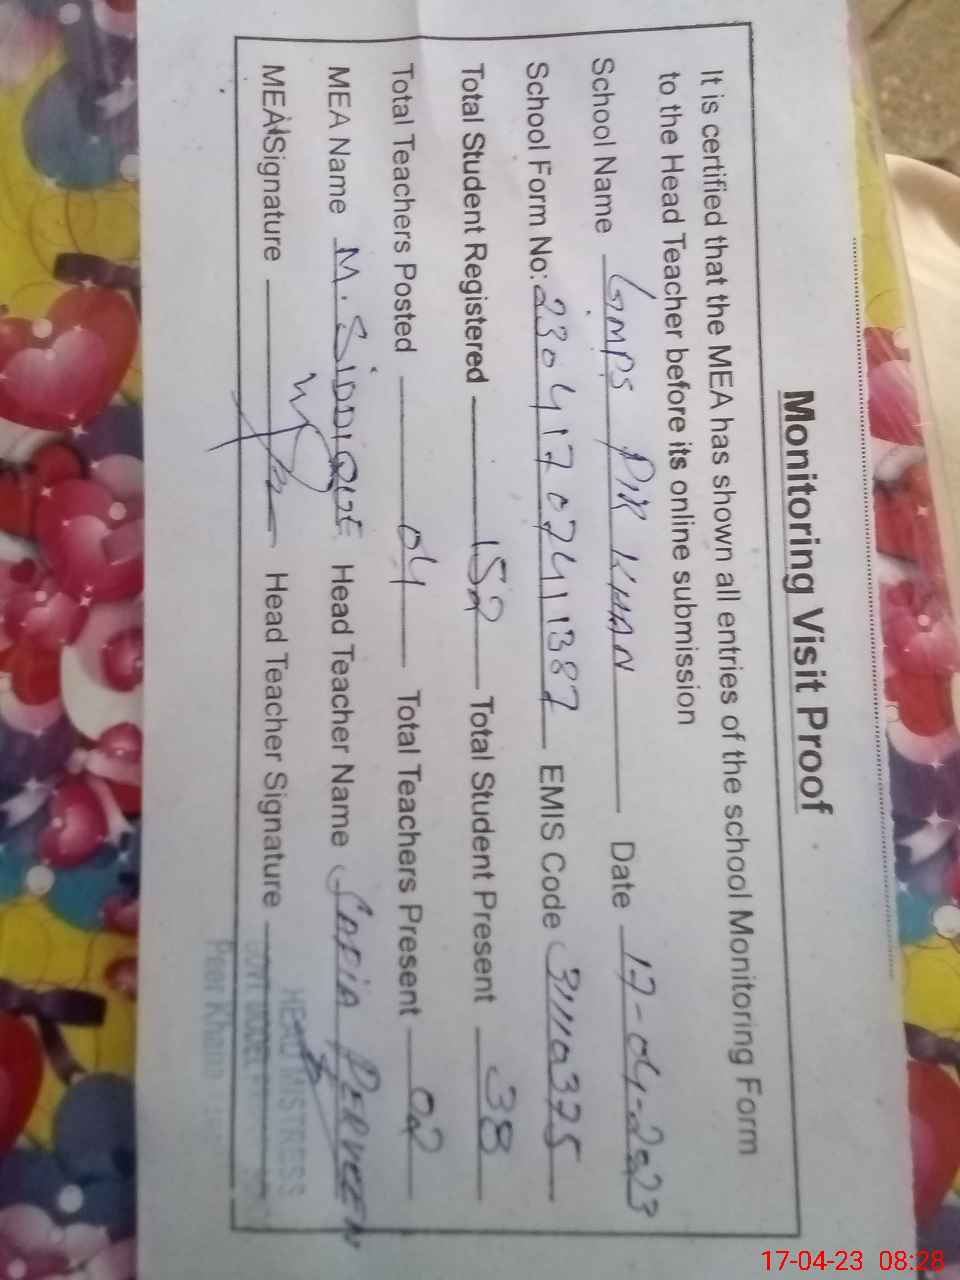 Monitoring Visit Proof
It is certified that the MEA has shown all entries of the school Monitoring Form
to the Head Teacher before its online submission
School Name GMPS PIR KHAN Date 17-04-2023
School Form No: 23041707411387 EMIS Code 31110375
Total Student Registered 152 Total Student Present 38
Total Teachers Posted 04 Total Teachers Present 02
MEA Name M. SIDDIQUE Head Teacher Name SAFIA PERVEEN
MEA Signature Head Teacher Signature
HEAD MISTRESS
GOVT. MODEL
Peer Khan
17-04-23 08:28